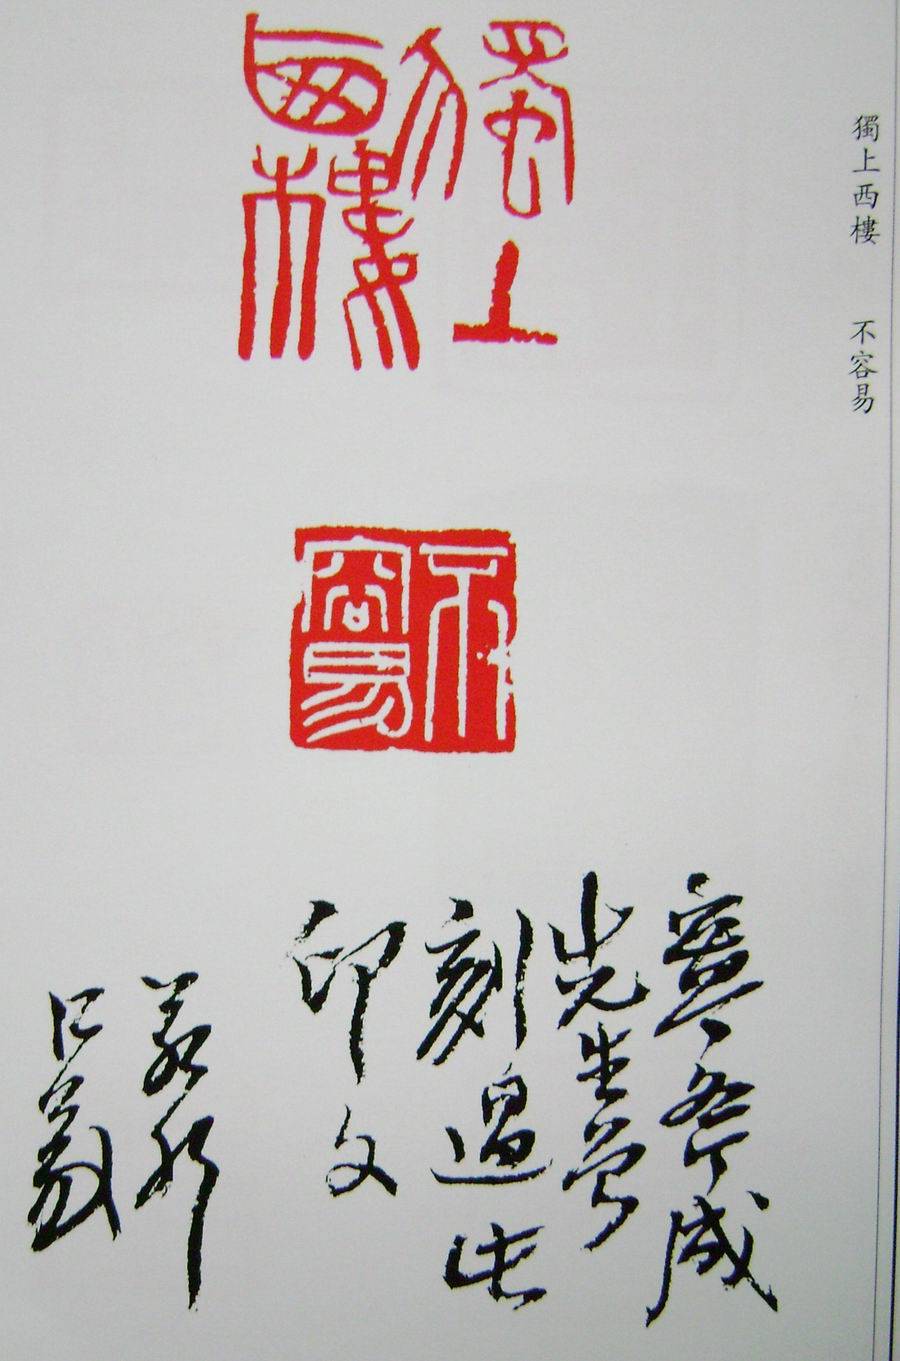 獨上西樓　不容易
獨上
西樓
不
容易
寧斧成
先生曾
刻過此
印文